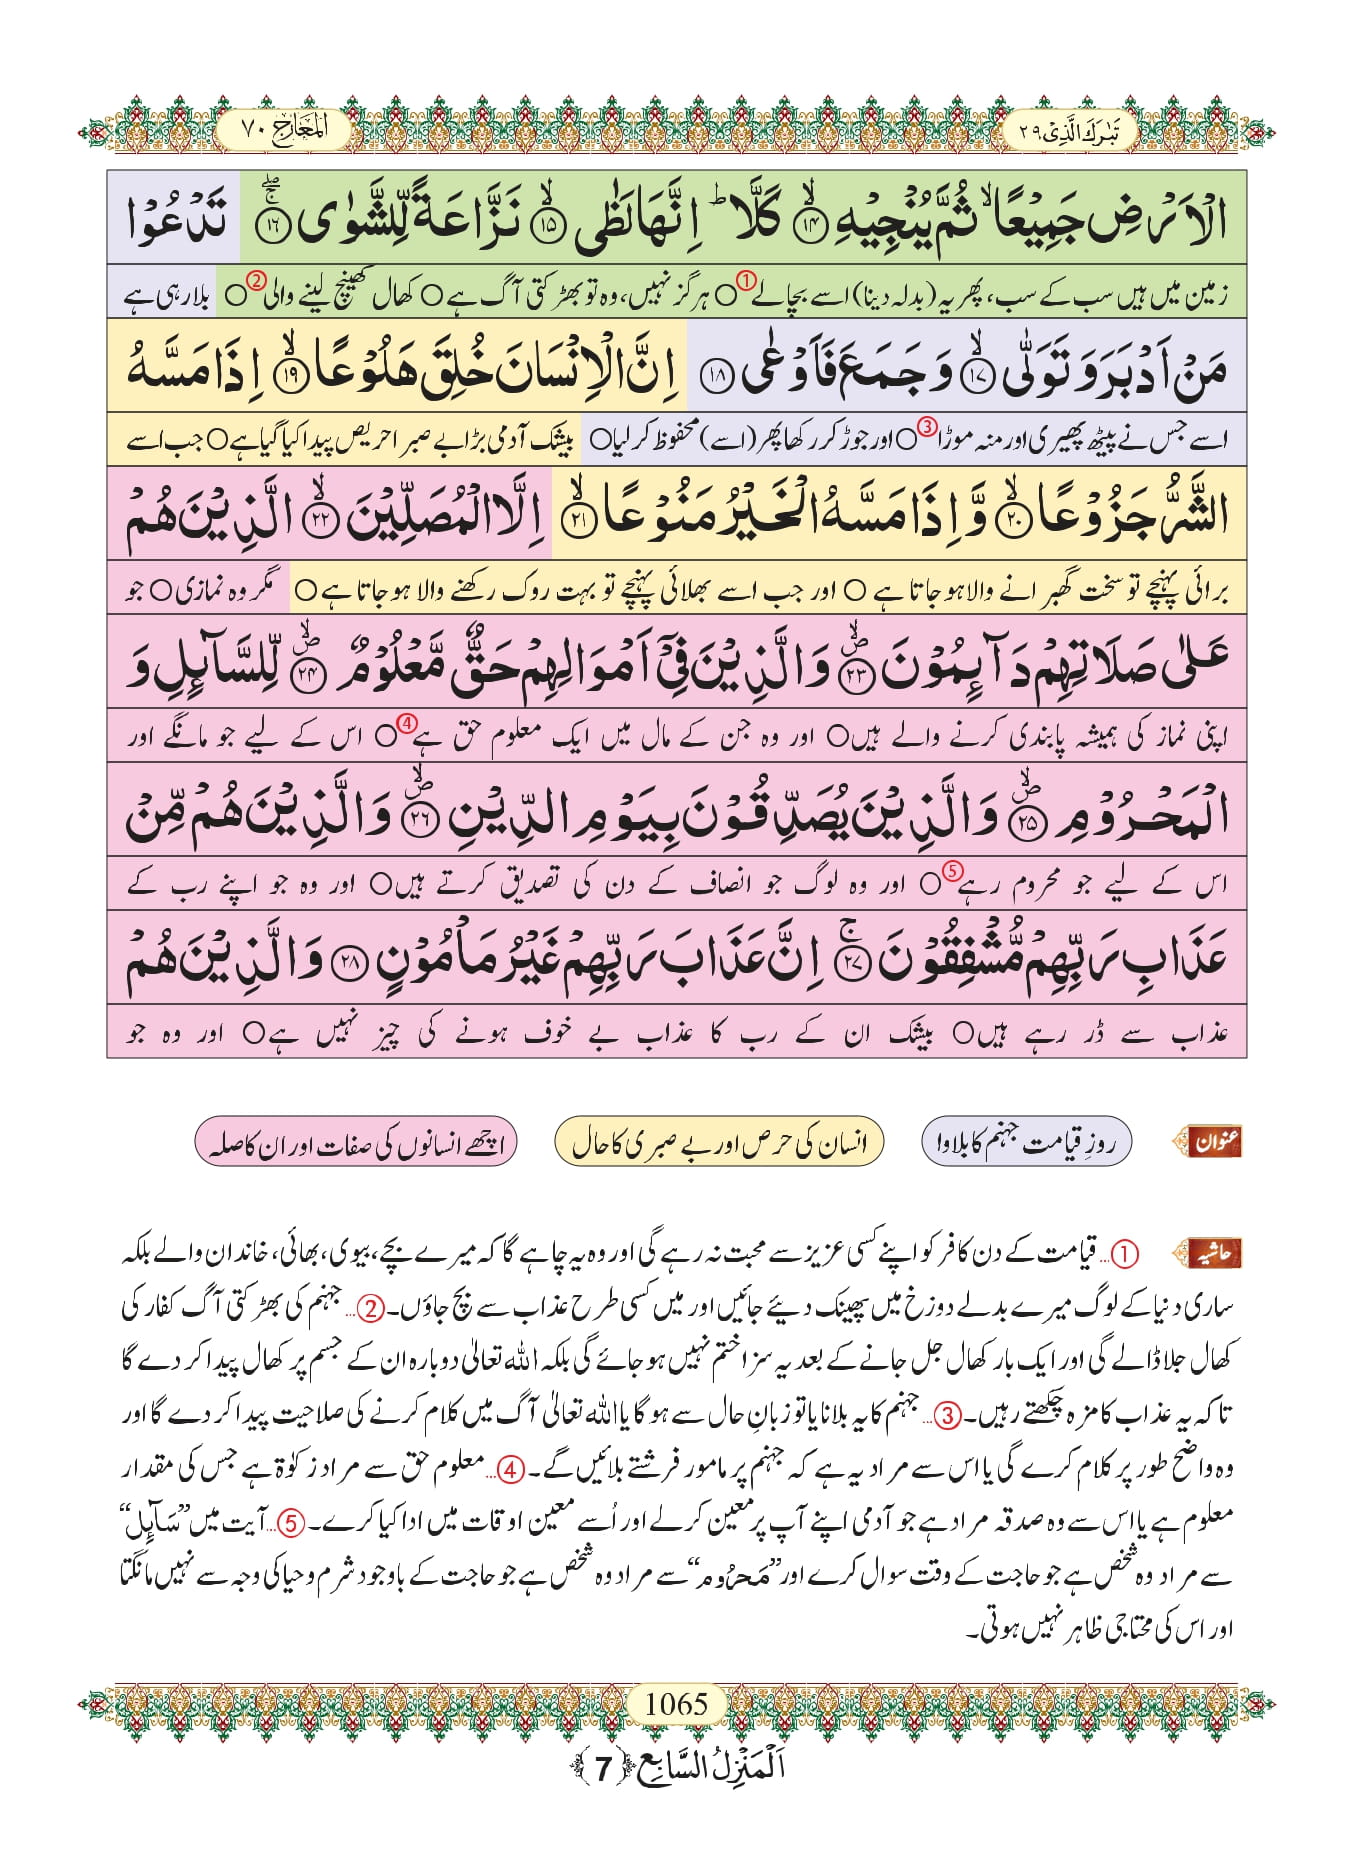 تَبٰرَكَ الَّذِیْ ۲۹
اَلْمَعَارِج ۷۰
الْاَرْضِ جَمِیْعًاۙ ثُمَّ یُنْجِیْهِۙ﴿۱۴﴾ كَلَّاؕ اِنَّهَا لَظٰىۙ﴿۱۵﴾ نَزَّاعَةً لِّلشَّوٰىۚۖ﴿۱۶﴾ تَدْعُوْا
زمین میں ہیں سب کے سب، پھر یہ (بدلہ دینا) اسے بچالے ① ○ ہرگز نہیں، وہ تو بھڑکتی آگ ہے ○ کھال کھینچ لینے والی ② ○ بلا رہی ہے
مَنْ اَدْبَرَ وَ تَوَلّٰىۙ﴿۱۷﴾ وَ جَمَعَ فَاَوْعٰى﴿۱۸﴾ اِنَّ الْاِنْسَانَ خُلِقَ هَلُوْعًاۙ﴿۱۹﴾ اِذَا مَسَّهُ
اسے جس نے پیٹھ پھیری اور منہ موڑا ③ ○ اور جوڑ کر رکھا پھر (اسے) محفوظ کرلیا ○ بیشک آدمی بڑا بے صبرا حریص پیدا کیا گیا ہے ○ جب اسے
الشَّرُّ جَزُوْعًاۙ﴿۲۰﴾ وَّ اِذَا مَسَّهُ الْخَیْرُ مَنُوْعًاۙ﴿۲۱﴾ اِلَّا الْمُصَلِّیْنَۙ﴿۲۲﴾ الَّذِیْنَ هُمْ
برائی پہنچے تو سخت گھبرانے والا ہوجاتا ہے ○ اور جب اسے بھلائی پہنچے تو بہت روک رکھنے والا ہوجاتا ہے ○ مگر وہ نمازی ○ جو
عَلٰى صَلَاتِهِمْ دَآىٕمُوْنَﭪۙ﴿۲۳﴾ وَ الَّذِیْنَ فِیْۤ اَمْوَالِهِمْ حَقٌّ مَّعْلُوْمٌﭪۙ﴿۲۴﴾ لِّلسَّآىٕلِ وَ
اپنی نماز کی ہمیشہ پابندی کرنے والے ہیں ○ اور وہ جن کے مال میں ایک معلوم حق ہے ④ ○ اس کے لیے جو مانگے اور
الْمَحْرُوْمِﭪۙ﴿۲۵﴾ وَ الَّذِیْنَ یُصَدِّقُوْنَ بِیَوْمِ الدِّیْنِﭪۙ﴿۲۶﴾ وَ الَّذِیْنَ هُمْ مِّنْ
اس کے لیے جو محروم رہے ⑤ ○ اور وہ لوگ جو انصاف کے دن کی تصدیق کرتے ہیں ○ اور وہ جو اپنے رب کے
عَذَابِ رَبِّهِمْ مُّشْفِقُوْنَۚ﴿۲۷﴾ اِنَّ عَذَابَ رَبِّهِمْ غَیْرُ مَاْمُوْنٍ﴿۲۸﴾ وَ الَّذِیْنَ هُمْ
عذاب سے ڈر رہے ہیں ○ بیشک ان کے رب کا عذاب بے خوف ہونے کی چیز نہیں ہے ○ اور وہ جو
عنوان روزِ قیامت جہنم کا بلاوا انسان کی حرص اور بے صبری کا حال اچھے انسانوں کی صفات اور ان کا صلہ
حاشیہ ①... قیامت کے دن کافر کو اپنے کسی عزیز سے محبت نہ رہے گی اور وہ یہ چاہے گا کہ میرے بچے، بیوی، بھائی، خاندان والے بلکہ
ساری دنیا کے لوگ میرے بدلے دوزخ میں پھینک دیئے جائیں اور میں کسی طرح عذاب سے بچ جاؤں۔ ②... جہنم کی بھڑکتی آگ کفار کی
کھال جلا ڈالے گی اور ایک بار کھال جل جانے کے بعد یہ سزا ختم نہیں ہوجائے گی بلکہ اللہ تعالیٰ دوبارہ ان کے جسم پر کھال پیدا کردے گا
تاکہ یہ عذاب کا مزہ چکھتے رہیں۔ ③... جہنم کا یہ بلانا یا تو زبانِ حال سے ہوگا یا اللہ تعالیٰ آگ میں کلام کرنے کی صلاحیت پیدا کردے گا اور
وہ واضح طور پر کلام کرے گی یا اس سے مراد یہ ہے کہ جہنم پر مامور فرشتے بلائیں گے۔ ④... معلوم حق سے مراد زکوٰۃ ہے جس کی مقدار
معلوم ہے یا اس سے وہ صدقہ مراد ہے جو آدمی اپنے آپ پر معین کرلے اور اُسے معین اوقات میں ادا کیا کرے۔ ⑤... آیت میں ”سَآىٕل“
سے مراد وہ شخص ہے جو حاجت کے وقت سوال کرے اور ”مَحْرُوْم“ سے مراد وہ شخص ہے جو حاجت کے باوجود شرم و حیا کی وجہ سے نہیں مانگتا
اور اس کی محتاجی ظاہر نہیں ہوتی۔
1065
اَلْمَنْزِلُ السَّابِع ﴿7﴾